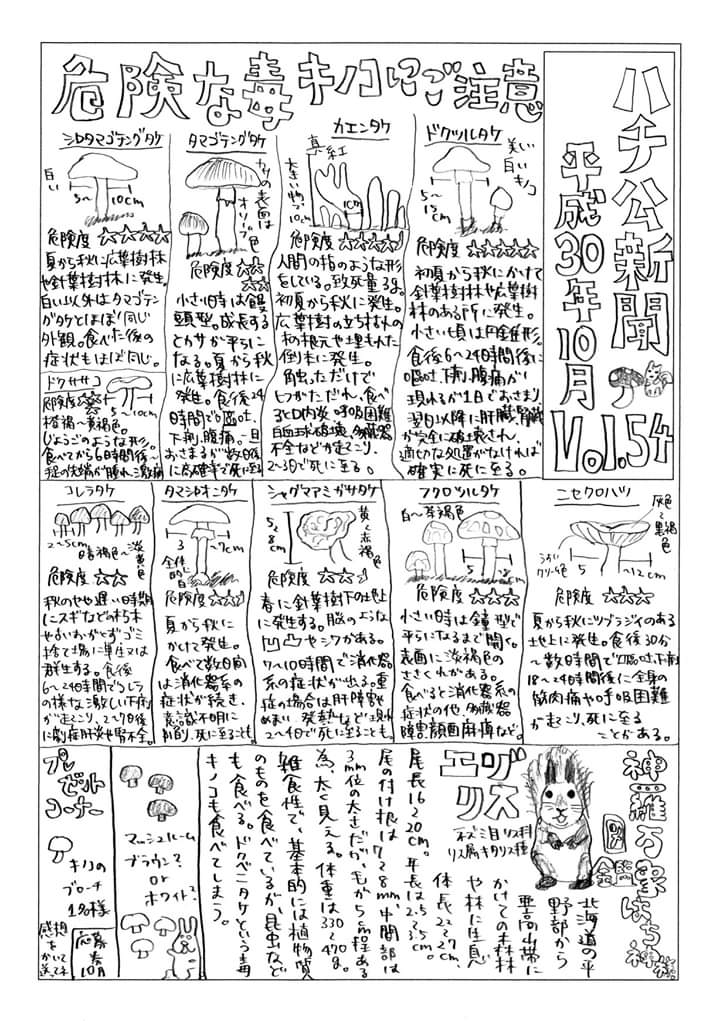 ハチ公新聞
平成30年10月
Vol.54
危険な毒キノコにご注意
ドクツルタケ
美しい
白いキノコ
5〜
15cm
危険度 ☆☆☆☆☆
初夏から秋にかけて
針葉樹林や広葉樹
林のある所に発生。
小さい頃は円錐形。
食後6〜24時間後に
嘔吐、下痢、腹痛が
現れるが1日でおさまり、
翌日以降に肝臓、腎臓
が完全に破壊され、
適切な処置がなければ
確実に死に至る。
カエンタケ
真紅
大きい物で
10cm
危険度 ☆☆☆☆
人間の指のような形
をしている。致死量3g。
初夏から秋に発生。
広葉樹の立ち枯れ
の根元や埋もれた
倒木に発生。
触っただけで
ヒフがただれ、食べ
ると口内炎、呼吸困難
白血球破壊、多臓器
不全などが起こり、
2〜3日で死に至る。
タマゴテングタケ
カサの表面は
オリーブ色
危険度 ☆☆
☆☆
小さい時は饅
頭型。成長する
とカサが平らに
なる。夏から秋
に広葉樹林に
発生。食後24
時間で嘔吐、
下痢、腹痛。一旦
おさまるが数日後
に高確率で死に至る
シロタマゴテングタケ
白い
5〜10cm
危険度 ☆☆☆☆
夏から秋に広葉樹林
や針葉樹林に発生。
白い以外はタマゴテン
グタケとほぼ同じ
外観。食べた後の
症状もほぼ同じ。
ドクササコ
危険度☆☆
5〜10cm
橙褐〜黄褐色。
じょうごのような形。
食べてから6時間後〜
指の先端が腫れ、激痛
ニセクロハツ
灰色〜
黒褐色
うすい
クリーム色
5〜12cm
危険度 ☆☆☆
夏から秋にツブラジイのある
地上に発生。食後30分
〜数時間で嘔吐、下痢
18〜24時間後に全身の
筋肉痛や呼吸困難
が起こり、死に至る
ことがある。
フクロツルタケ
白〜茶褐色
危険度 ☆☆☆
小さい時は鐘型で
平らになるまで開く。
表面に淡褐色の
ささくれがある。
食べると消化器系の
症状の他、多臓器
障害、顔面麻痺など。
シャグマアミガサタケ
5〜
8cm
黄〜赤褐色
危険度 ☆☆
春に針葉樹下の地上
に発生する。脳のような
凹凸やシワがある。
7〜10時間で消化器
系の症状が出る。重
症の場合は肝障害
めまい、発熱などが現れ
2〜4日で死に至ることも。
タマシロオニタケ
3〜7cm
全体的に白
危険度 ☆☆
夏から秋に
かけて発生。
食べて数日間
は消化器系の
症状が続き、
意識不明に
陥り、死に至ることも。
コレラタケ
2〜5cm
暗褐色〜淡黄色
危険度 ☆☆
秋のやや遅い時期
にスギなどの朽ち木
やオガクズ、ゴミ
捨て場に単生又は
群生する。食後
6〜24時間でコレラ
の様な激しい下痢
が起こり、2〜7日後
に劇症肝炎や腎不全。
神羅万象はち神
図鑑
エゾ
リス
ネズミ目リス科
リス属キタリス種
北海道の平
野部から
亜高山帯に
かけての森林
や林に生息
体長22〜27cm、
尾長16〜20cm。耳長は2.5〜3.5cm。
尾の付け根は7〜8mm、中間部は
3mm位の太さだが、毛が5cm程ある
為、太く見える。体重は330〜470g。
雑食性で、基本的には植物質
のものを食べているが、昆虫など
も食べる。ドクベニタケという毒
キノコも食べてしまう。
マッシュルーム
ブラウン?
or
ホワイト?
プレ
ゼント
コーナー
キノコの
ブローチ
1名様
応募券
10月
感想をかいて送ってね